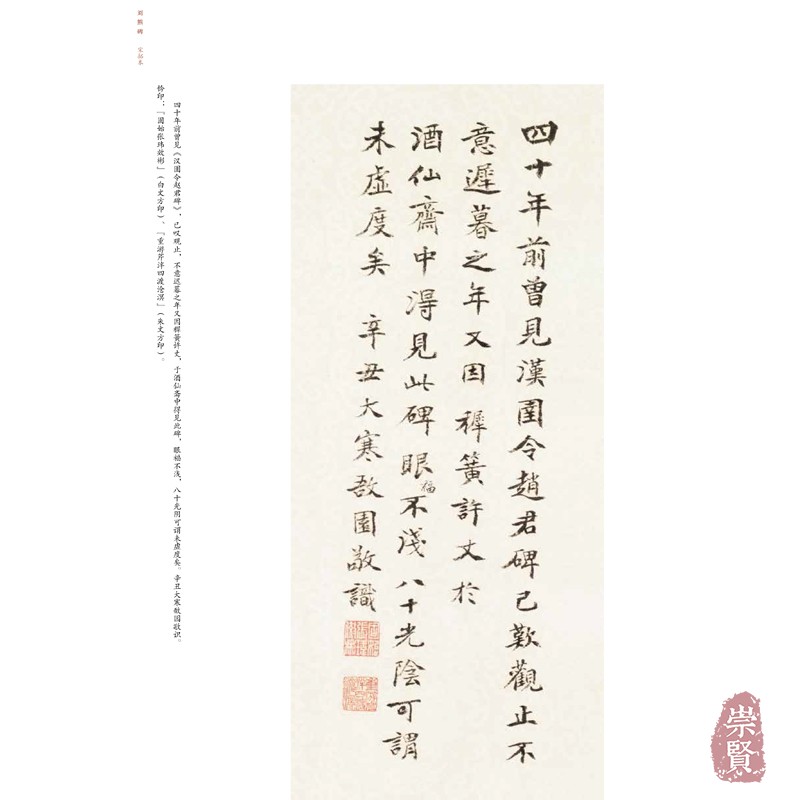 四十年前曾見漢圉令趙君碑已歎觀止不
意遲暮之年又因穉簧許丈於
酒仙齋中得見此碑眼福不淺八十光陰可謂
未虛度矣 辛丑大寒敔園敬識
四十年前曾见《汉圉令赵君碑》，已叹观止，不意迟暮之年又因穉簧许丈，于酒仙斋中得见此碑，眼福不浅，八十光阴可谓未虚度矣。辛丑大寒敔园敬识。
钤印：「固始张玮效彬」（白文方印）、「重游芹泮四渡沧溟」（朱文方印）。
刘熊碑 宋拓本
崇賢